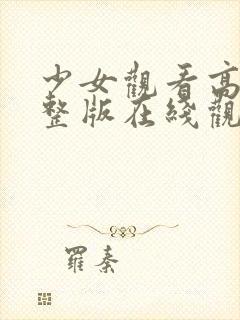 少女觀看高
整版在綫觀
羅秦